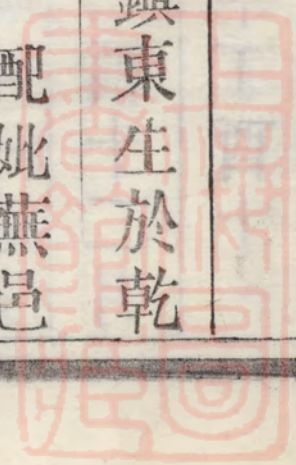 鎮東生於乾
配妣蕪邑